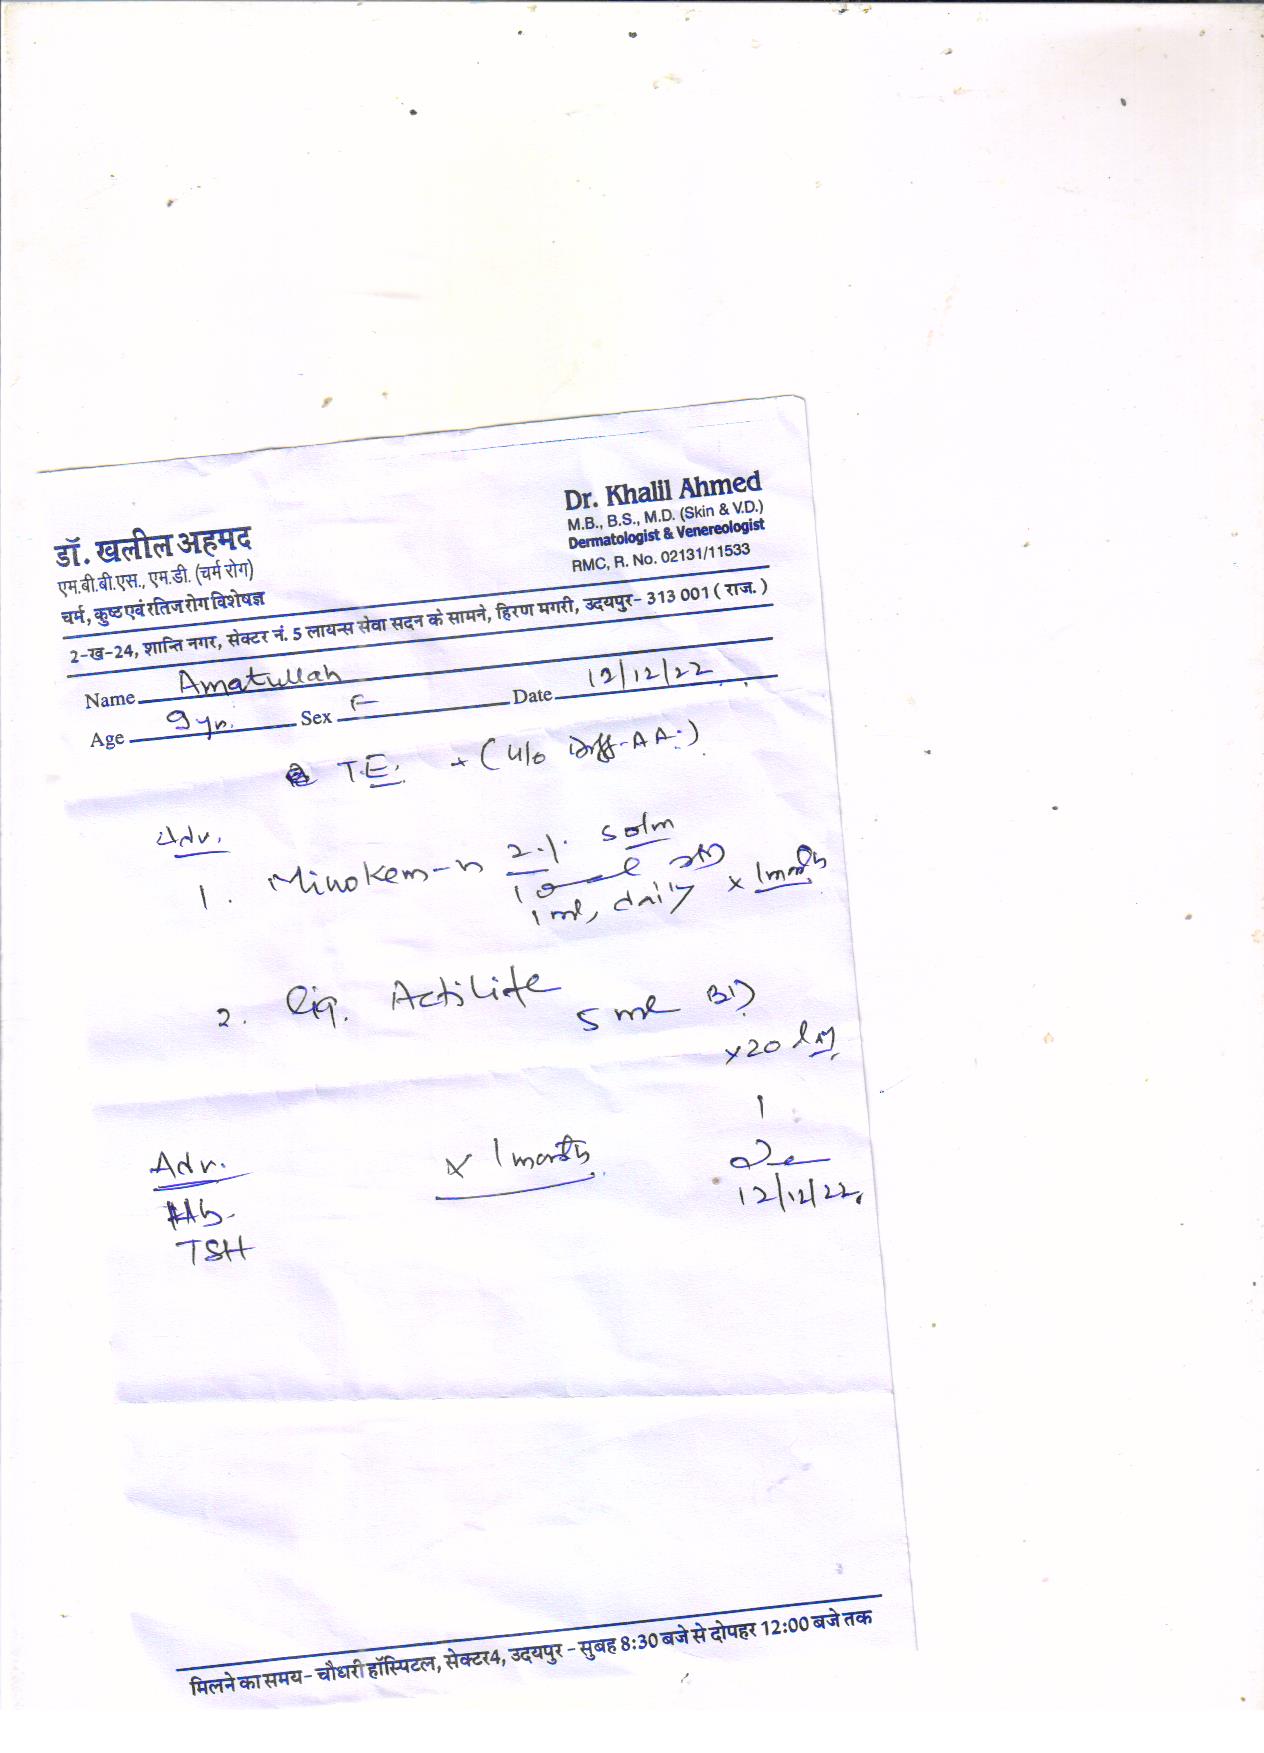 डॉ. खलील अहमद
एम.बी.बी.एस., एम.डी. (चर्म रोग)
चर्म, कुष्ठ एवं रतिज रोग विशेषज्ञ
Dr. Khalil Ahmed
M.B., B.S., M.D. (Skin & V.D.)
Dermatologist & Venereologist
RMC, R. No. 02131/11533
2-ख-24, शान्ति नगर, सेक्टर नं. 5 लायन्स सेवा सदन के सामने, हिरण मगरी, उदयपुर- 313 001 ( राज. )
Name Amatullah Date 12/12/22
Age 9 yr. Sex F
T.E. + ( Diff. AA.)
Adv.
1. Minokem-N 2% soln
1 ml, daily x 1 month
2. liq. Actilife 5 ml BD
x 20 day
Adv. x 1 month
Hb.
TSH
12/12/22.
मिलने का समय- चौधरी हॉस्पिटल, सेक्टर4, उदयपुर - सुबह 8:30 बजे से दोपहर 12:00 बजे तक